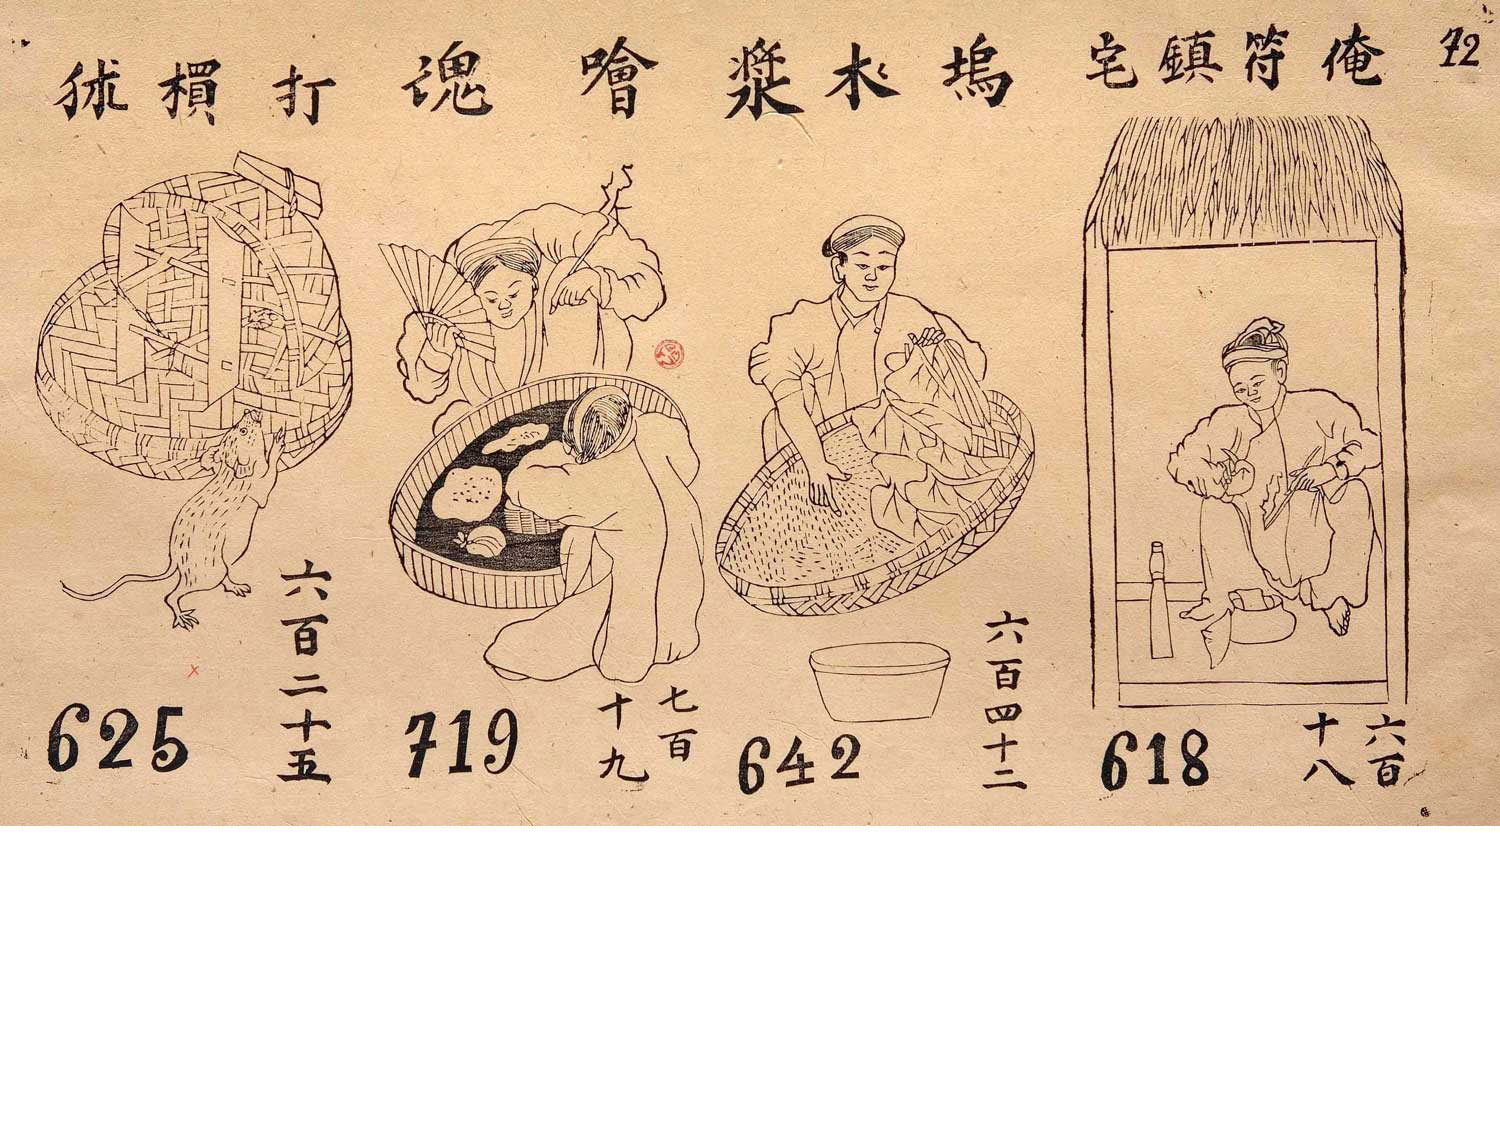 72
俺符鎮宅
六百
十八
618
塢木漿
六百四十二
642
噲魂
七百
十九
719
打
六百二十五
625